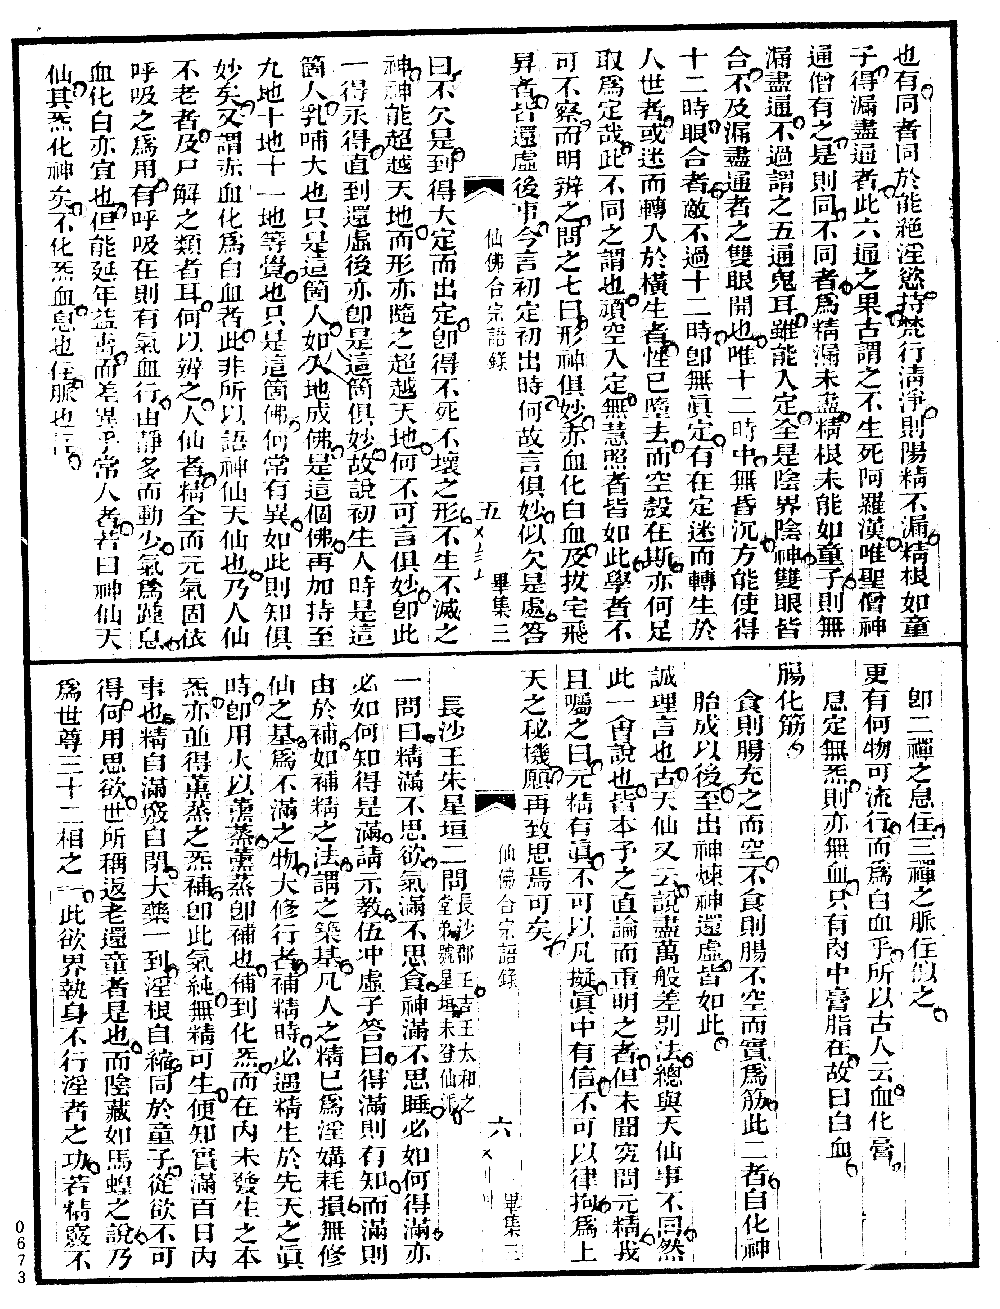 也有同者同於能絕淫慾持梵行清淨則陽精不漏精根如童
子得漏盡通者此六通之果古謂之不生死阿羅漢唯聖僧神
通僧有之是則同不同者爲精漏未盡精根未能如童子則無
漏盡通不過謂之五通鬼耳雖能入定全是陰界陰神雙眼皆
合不及漏盡通者之雙眼開也唯十二時中無昏沉方能使得
十二時眼合者敵不過十二時卽無眞定有在定迷而轉生於
人世者或迷而轉入於橫生者性已墮去而空殼在斯亦何足
取爲定哉此不同之謂也頑空入定無慧照者皆如此學者不
可不察而明辨之問之七曰形神俱妙亦血化白血及拔宅飛
昇者皆還虛後事今言初定初出時何故言俱妙似欠是處答
仙佛合宗語錄
五
畢集三
曰不欠是到得大定而出定卽得不死不壞之形不生不滅之
神神能超越天地而形亦隨之超越天地何不可言俱妙卽此
一得永得直到還虛後亦卽是這箇俱妙故說初生人時是這
箇人乳哺大也只是這箇人如欠地成佛是這個佛再加持至
九地十地十一地等覺也只是這箇佛何常有異如此則知俱
妙矣又謂赤血化爲白血者此非所以語神仙天仙也乃人仙
不老者及尸解之類者耳何以辨之人仙者精全而元氣固依
呼吸之爲用有呼吸在則有氣血行由靜多而動少氣爲踵息
血化白亦宜也但能延年益壽而差異乎常人者若曰神仙天
仙其炁化神矣不化炁血息也住脈也住
卽二禪之息住三禪之脈住似之
更有何物可流行而爲白血乎所以古人云血化膏
息定無炁則亦無血只有肉中膏脂在故曰白血
腸化筋
食則腸充之而空不食則腸不空而實爲筋此二者自化神
胎成以後至出神煉神還虛皆如此
誠理言也古天仙又云說盡萬般差別法總與天仙事不同然
此一會說也皆本予之直論而重明之者但未聞究問元精我
且囑之曰元精有眞不可以凡擬眞中有信不可以律拘爲上
天之秘機願再致思焉可矣
仙佛合宗語錄
六
畢集
長沙王朱星垣二問長沙郡王吉王太和之堂弟號星垣未登仙派
一問曰精滿不思欲氣滿不思食神滿不思睡必如何得滿亦
必如何知得是滿請示教伍冲虛子答曰得滿則有知而滿則
由於補如補精之法謂之築基凡人之精已爲淫媾耗損無修
仙之基爲不滿之物大修行者補精時必遇精生於先天之眞
時卽用火以薰蒸薰蒸卽補也補到化炁而在內未發生之本
炁亦並得薰蒸之炁補卽此氣純無精可生便知實滿百日內
事也精自滿竅自閉大藥一到淫根自縮同於童子從欲不可
得何用思欲世所稱返老還童者是也而陰藏如馬蝗之說乃
爲世尊三十二相之一此欲界執身不行淫者之功若精竅不
0673